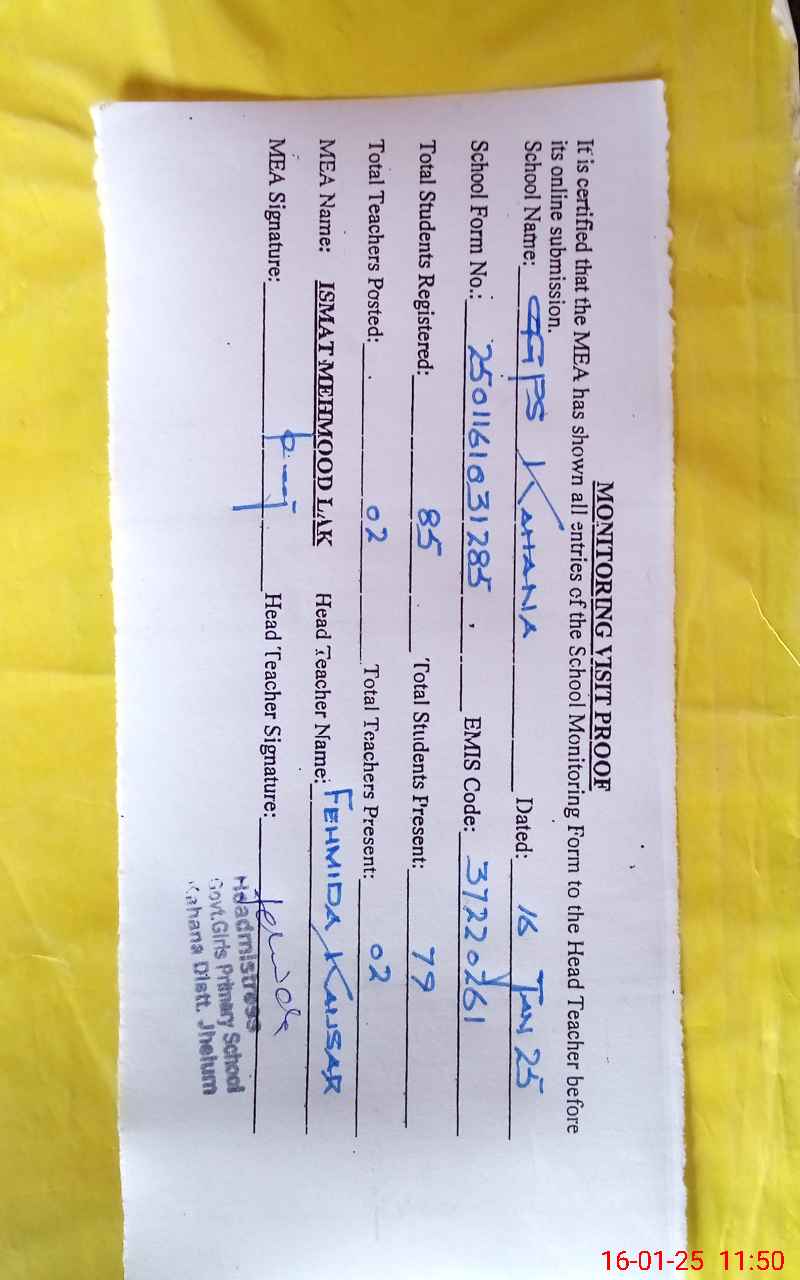 MONITORING VISIT PROOF
It is certified that the MEA has shown all entries of the School Monitoring Form to the Head Teacher before
its online submission.
School Name: GGPS KAHANA Dated: 16 JAN 25
School Form No.: 2501161031285, EMIS Code: 37220261
Total Students Registered: 85 Total Students Present: 79
Total Teachers Posted: 02 Total Teachers Present: 02
MEA Name: ISMAT MEHMOOD LAK Head Teacher Name: FEHMIDA KAUSAR
MEA Signature: Head Teacher Signature:
Headmistress
Govt.Girls Primary School
Kahana Distt. Jhelum
16-01-25 11:50